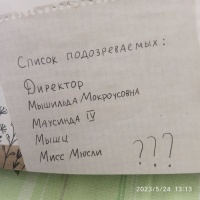 Список подозреваемых:
Директор
Мышильда Мокроусовна
Маусинда IV
Мыши
Мисс Мюсли
???
2023/5/24 13:13